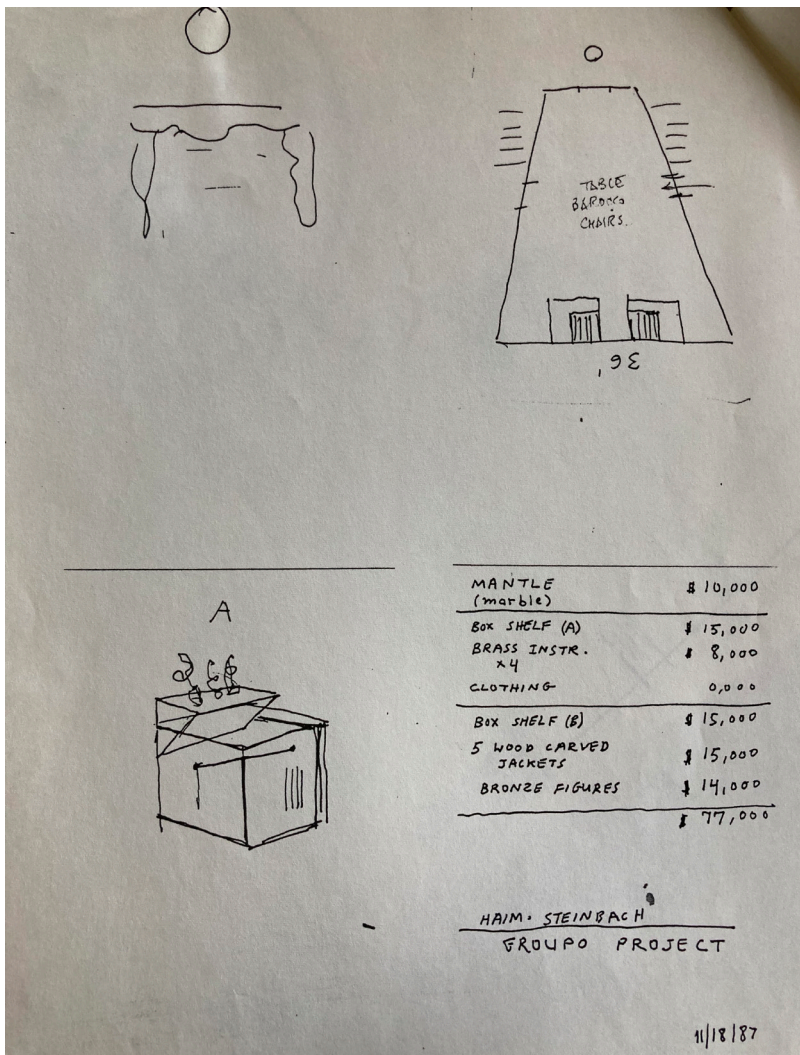 TABLE
BAROCCO
CHAIRS.
36'
A
MANTLE $ 10,000
(marble)
BOX SHELF (A) $ 15,000
BRASS INSTR. $ 8,000
x4
CLOTHING 0,000
BOX SHELF (B) $ 15,000
5 WOOD CARVED
JACKETS $ 15,000
BRONZE FIGURES $ 14,000
$ 77,000
HAIM. STEINBACH
GROUPO PROJECT
11/18/87